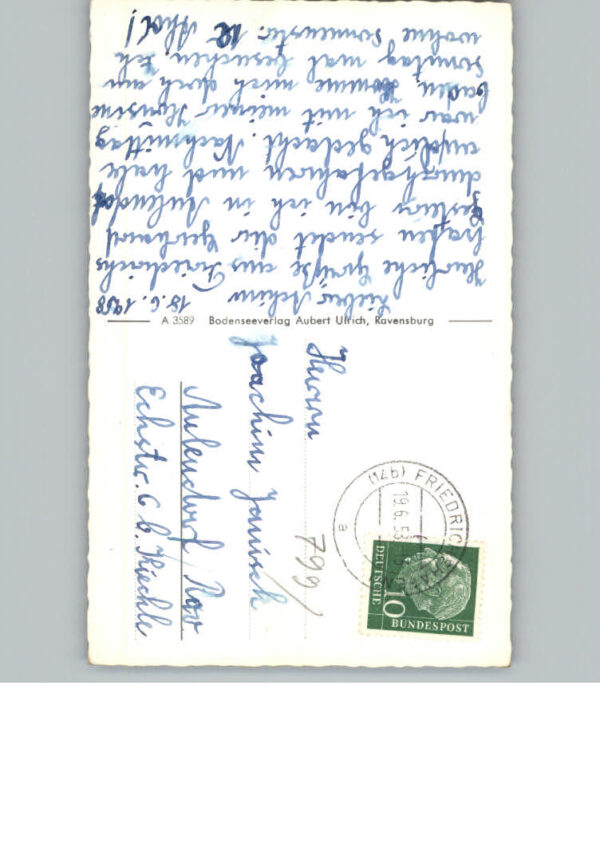 18.6.1958
Lieber Achim
Herzliche Grüße aus Friedrichs
hafen sendet dir Gerhard
Gestern bin ich in Aulendorf
durchgefahren und habe
an dich gedacht. Nachmittag
war ich mit meiner Kusine
baden. Komme mich doch am
Sonntag mal besuchen. Ich
wohne Sonnenstr. 12 Ahoi!
A 3589 Bodenseeverlag Aubert Ulrich, Ravensburg
Herrn
Joachim Janisch
Aulendorf/Rav
Eckstr. 6 b. Kiechle
799/
(14b) FRIEDRICHSHAFEN
19.6.58
a
DEUTSCHE
10
BUNDESPOST